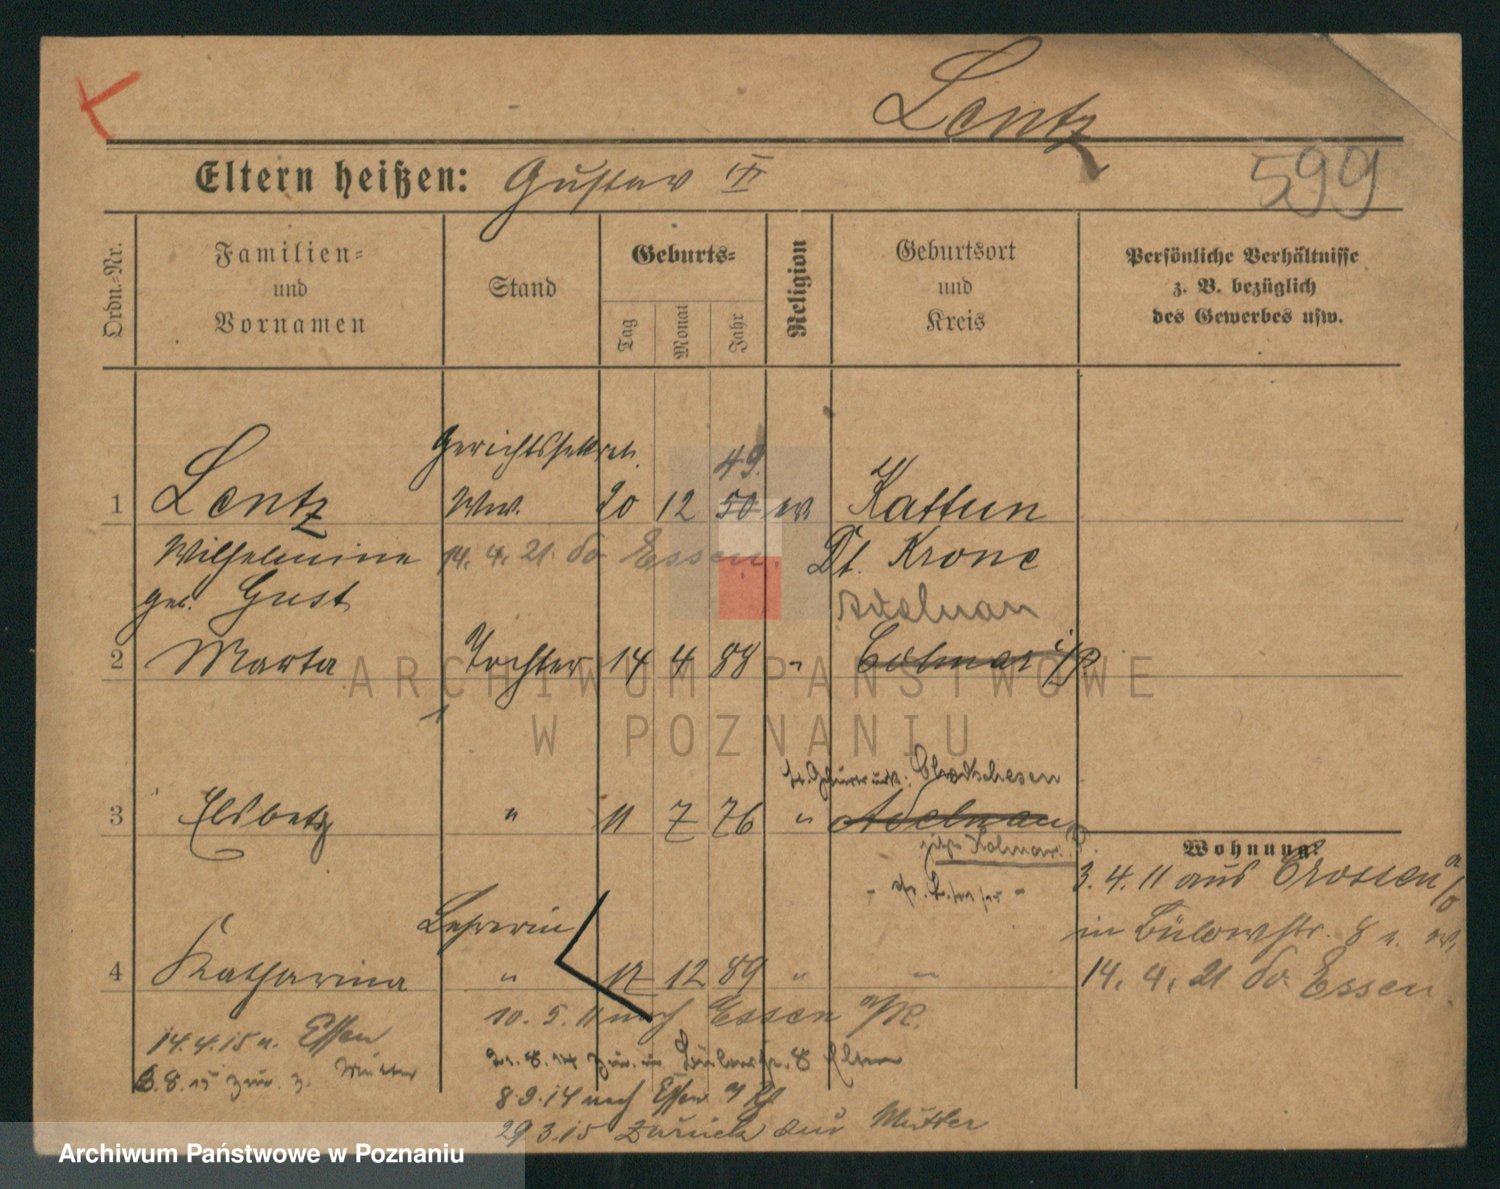 Lentz
599
Eltern heißen: Gustav IV
Ordn.-Nr.
Familien-
und
Vornamen
Stand
Geburts-
Tag
Monat
Jahr
Religion
Geburtsort
und
Kreis
Persönliche Verhältnisse
z. B. bezüglich
des Gewerbes usw.
Gerichtssekret. 49.
1 Lentz Ww. 20 12 50 ev Kattun
Wilhelmine 14. 4. 21. do Essen. Dt. Krone
geb. Gust Adelnau
2 Marta Tochter 14 4 88 " Colmar i/P
Elsbeth " 11 7 76 " Adelnau
3
Kolmar
Wohnung:
3. 4. 11 aus Crossen a/O
in Bülowstr. 8
14. 4. 21 do Essen.
Lehrerin
4 Katharina " 17 12 89 " "
10. 5. 11 nach Essen a/R.
14.4.15 n. Essen
8.8.15 zur. z. Mutter
zur. in Bülowstr. 8 Eltern
8.9.14 nach Essen a/R
29 3.15 zurück zur Mutter
ARCHIWUM PAŃSTWOWE
W POZNANIU
Archiwum Państwowe w Poznaniu